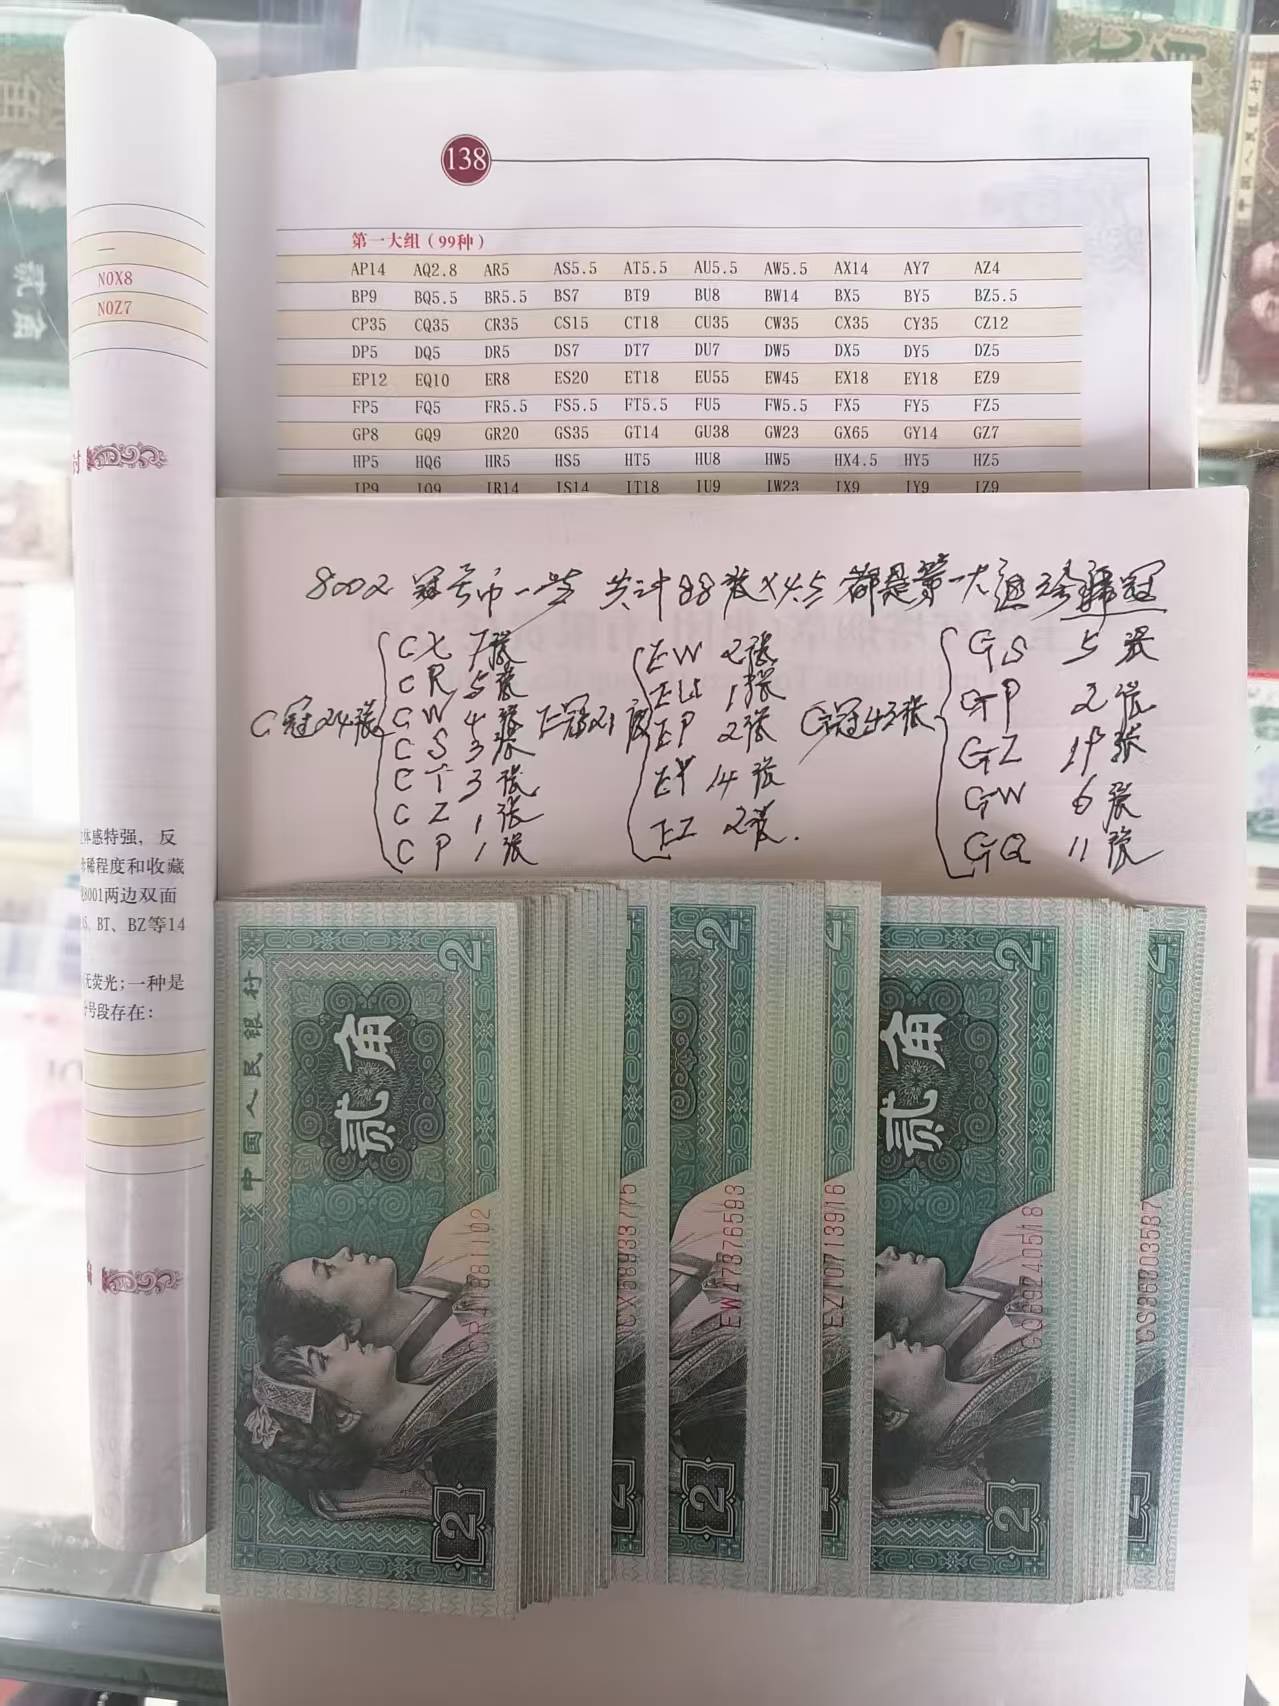 138
第一大组（99种）
AP14 AQ2.8 AR5 AS5.5 AT5.5 AU5.5 AW5.5 AX14 AY7 AZ4
BP9 BQ5.5 BR5.5 BS7 BT9 BU8 BW14 BX5 BY5 BZ5.5
CP35 CQ35 CR35 CS15 CT18 CU35 CW35 CX35 CY35 CZ12
DP5 DQ5 DR5 DS7 DT7 DU7 DW5 DX5 DY5 DZ5
EP12 EQ10 ER8 ES20 ET18 EU55 EW45 EX18 EY18 EZ9
FP5 FQ5 FR5.5 FS5.5 FT5.5 FU5 FW5.5 FX5 FY5 FZ5
GP8 GQ9 GR20 GS35 GT14 GU38 GW23 GX65 GY14 GZ7
HP5 HQ6 HR5 HS5 HT5 HU8 HW5 HX4.5 HY5 HZ5
IP9 IQ9 IR14 IS14 IT18 IU9 IW23 IX9 IY9 IZ9
一
N0X8
N0Z7
体感特强，反
稀程度和收藏
8001两边双面
BT、BZ等14
无荧光；一种是
号段存在：
8002 冠号币一些 共计88张 都是第一大组 冠
C冠24张
CX 7张
CR 5张
CW 4张
CS 3张
CT 3张
CZ 1张
CP 1张
E冠21张
EW 2张
EU 1张
EP 2张
EY 14张
EZ 2张.
G冠43张
GS 5张
GP 2张
GZ 19张
GW 6张
GQ 11张
中国人民银行
贰角
2
2
CX58933775
2
EW47376593
2
EZ10713916
贰角
2
GQ69240518
2
GS36303587
2